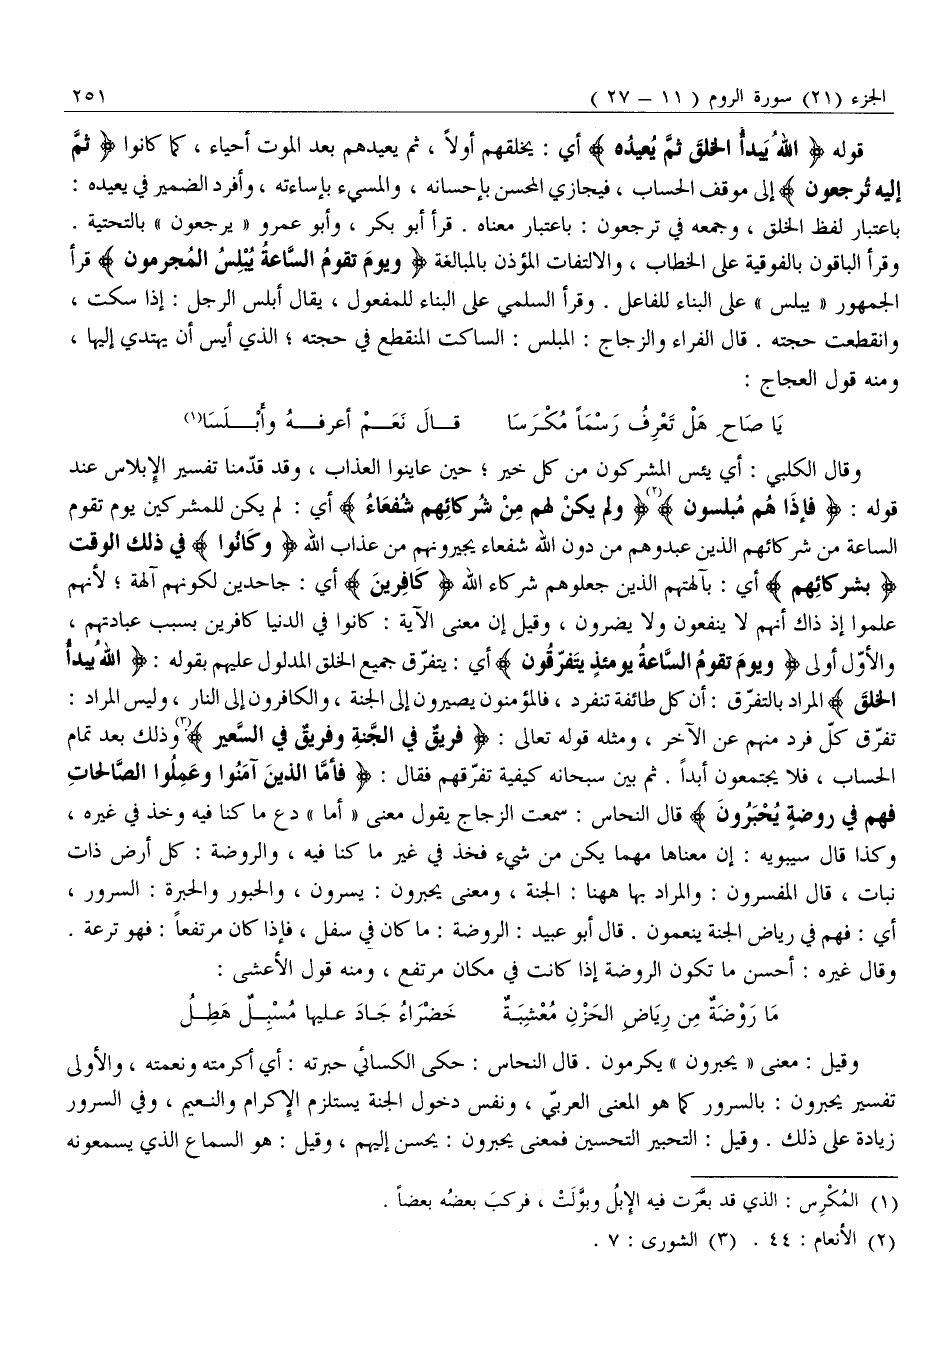 الجزء (٢١) سورة الروم ( ١١ – ٢٧ ) ٢٥١
قوله ﴿ اللهُ يَبدأُ الخلقَ ثمَّ يُعيدُه ﴾ أي : يخلقهم أولاً ، ثم يعيدهم بعد الموت أحياء ، كما كانوا ﴿ ثمَّ
إليه تُرجعون ﴾ إلى موقف الحساب ، فيجازي المحسن بإحسانه ، والمسيء بإساءته ، وأفرد الضمير في يعيده :
باعتبار لفظ الخلق ، وجمعه في ترجعون : باعتبار معناه . قرأ أبو بكر ، وأبو عمرو « يرجعون » بالتحتية .
وقرأ الباقون بالفوقية على الخطاب ، والالتفات المؤذن بالمبالغة ﴿ ويومَ تقومُ السَّاعةُ يُبْلسُ المُجرمون ﴾ قرأ
الجمهور « يبلس » على البناء للفاعل . وقرأ السلمي على البناء للمفعول ، يقال أبلس الرجل : إذا سكت ،
وانقطعت حجته . قال الفراء والزجاج : المبلس : الساكت المنقطع في حجته ؛ الذي أيس أن يهتدي إليها ،
ومنه قول العجاج :
يَا صَاحِ هَلْ تَعْرِفُ رَسْمَاً مُكْرَسَا قــالَ نَعَــمْ أعرفــهُ وأَبْــلَسَا(١)
وقال الكلبي : أي يئس المشركون من كل خير ؛ حين عاينوا العذاب ، وقد قدّمنا تفسير الإبلاس عند
قوله : ﴿ فإذَا هُم مُبلسون ﴾(٢)﴿ ولم يكنْ لهم مِنْ شُركائِهم شُفعَاءُ ﴾ أي : لم يكن للمشركين يوم تقوم
الساعة من شركائهم الذين عبدوهم من دون الله شفعاء يجيرونهم من عذاب الله ﴿ وكَانُوا ﴾ في ذلك الوقت
﴿ بشركائِهم ﴾ أي : بآلهتهم الذين جعلوهم شركاء الله ﴿ كَافِرِينَ ﴾ أي : جاحدين لكونهم آلهة ؛ لأنهم
علموا إذ ذاك أنهم لا ينفعون ولا يضرون ، وقيل إن معنى الآية : كانوا في الدنيا كافرين بسبب عبادتهم ،
والأوّل أولى ﴿ ويومَ تقومُ السَّاعةُ يومئذٍ يَتفَرَّقُون ﴾ أي : يتفرّق جميع الخلق المدلول عليهم بقوله : ﴿ اللهُ يبدأُ
الخلقَ ﴾ المراد بالتفرّق : أن كل طائفة تنفرد ، فالمؤمنون يصيرون إلى الجنة ، والكافرون إلى النار ، وليس المراد :
تفرّق كلّ فرد منهم عن الآخر ، ومثله قوله تعالى : ﴿ فريقٌ في الجَّنةِ وفريقٌ في السَّعير ﴾(٣) وذلك بعد تمام
الحساب ، فلا يجتمعون أبداً . ثم بين سبحانه كيفية تفرّقهم فقال : ﴿ فأمَّا الذينَ آمَنُوا وعَمِلُوا الصَّالحاتِ
فهم في روضةٍ يُحْبَرُونَ ﴾ قال النحاس : سمعت الزجاج يقول معنى « أما » دع ما كنا فيه وخذ في غيره ،
وكذا قال سيبويه : إن معناها مهما يكن من شيء فخذ في غير ما كنا فيه ، والروضة : كل أرض ذات
نبات ، قال المفسرون : والمراد بها ههنا : الجنة ، ومعنى يحبرون : يسرون ، والحبور والحبرة : السرور ،
أي : فهم في رياض الجنة ينعمون . قال أبو عبيد : الروضة : ما كان في سفل ، فإذا كان مرتفعاً : فهو ترعة .
وقال غيره : أحسن ما تكون الروضة إذا كانت في مكان مرتفع ، ومنه قول الأعشى :
مَا رَوْضَةٌ مِن رِيَاضِ الحَزْنِ مُعْشِبَةٌ خَضْرَاءُ جَادَ عليها مُسْبِلٌ هَطِلُ
وقيل : معنى « يحبرون » يكرمون . قال النحاس : حكى الكسائي حبرته : أي أكرمته ونعمته ، والأولى
تفسير يحبرون : بالسرور كما هو المعنى العربيّ ، ونفس دخول الجنة يستلزم الإكرام والنعيم ، وفي السرور
زيادة على ذلك . وقيل : التحبير التحسين فمعنى يحبرون : يحسن إليهم ، وقيل : هو السماع الذي يسمعونه
(١) المُكْرِس : الذي قد بعَّرت فيه الإبلُ وبوَّلَتْ ، فركبَ بعضُه بعضاً .
(٢) الأنعام : ٤٤ . (٣) الشورى : ٧ .